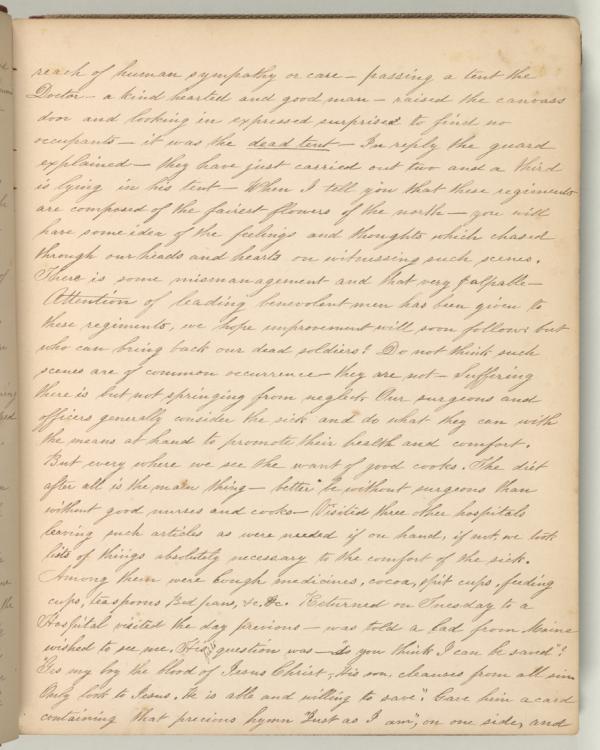 reach of human sympathy or care — passing a tent the
Doctor — a kind hearted and good man — raised the canvass
door and looking in expressed surprise to find no
occupants — it was the dead tent — In reply the guard
explained — they have just carried out two and a third
is lying in his tent — When I tell you that these regiments
are composed of the fairest flowers of the north — you will
have some idea of the feelings and thoughts which chased
through our heads and hearts on witnessing such scenes.
There is some mismanagement and that very palpable —
Attention of leading benevolent men has been given to
these regiments, we hope improvement will soon follow: but
who can bring back our dead soldiers? Do not think such
scenes are of common occurrence — they are not — Suffering
there is but not springing from neglect. Our surgeons and
officers generally consider the sick and do what they can with
the means at hand to promote their health and comfort.
But every where we see the want of good cooks. The diet
after all is the main thing — better be without surgeons than
without good nurses and cooks — Visited three other hospitals
leaving such articles as were needed if on hand, if not, we took
lists of things absolutely necessary to the comfort of the sick.
Among them were cough medicines, cocoa, spit cups, feeding
cups, teaspoons Bed pans, &c. &c. Returned on Tuesday to a
Hospital visited the day previous — was told a lad from Maine
wished to see me, His question was — "do you think I can be saved"?
"Yes my boy the blood of Jesus Christ, his son, cleanses from all sin
Only look to Jesus. He is able and willing to save". Gave him a card
containing that precious hymn "Just as I am", on one side, and